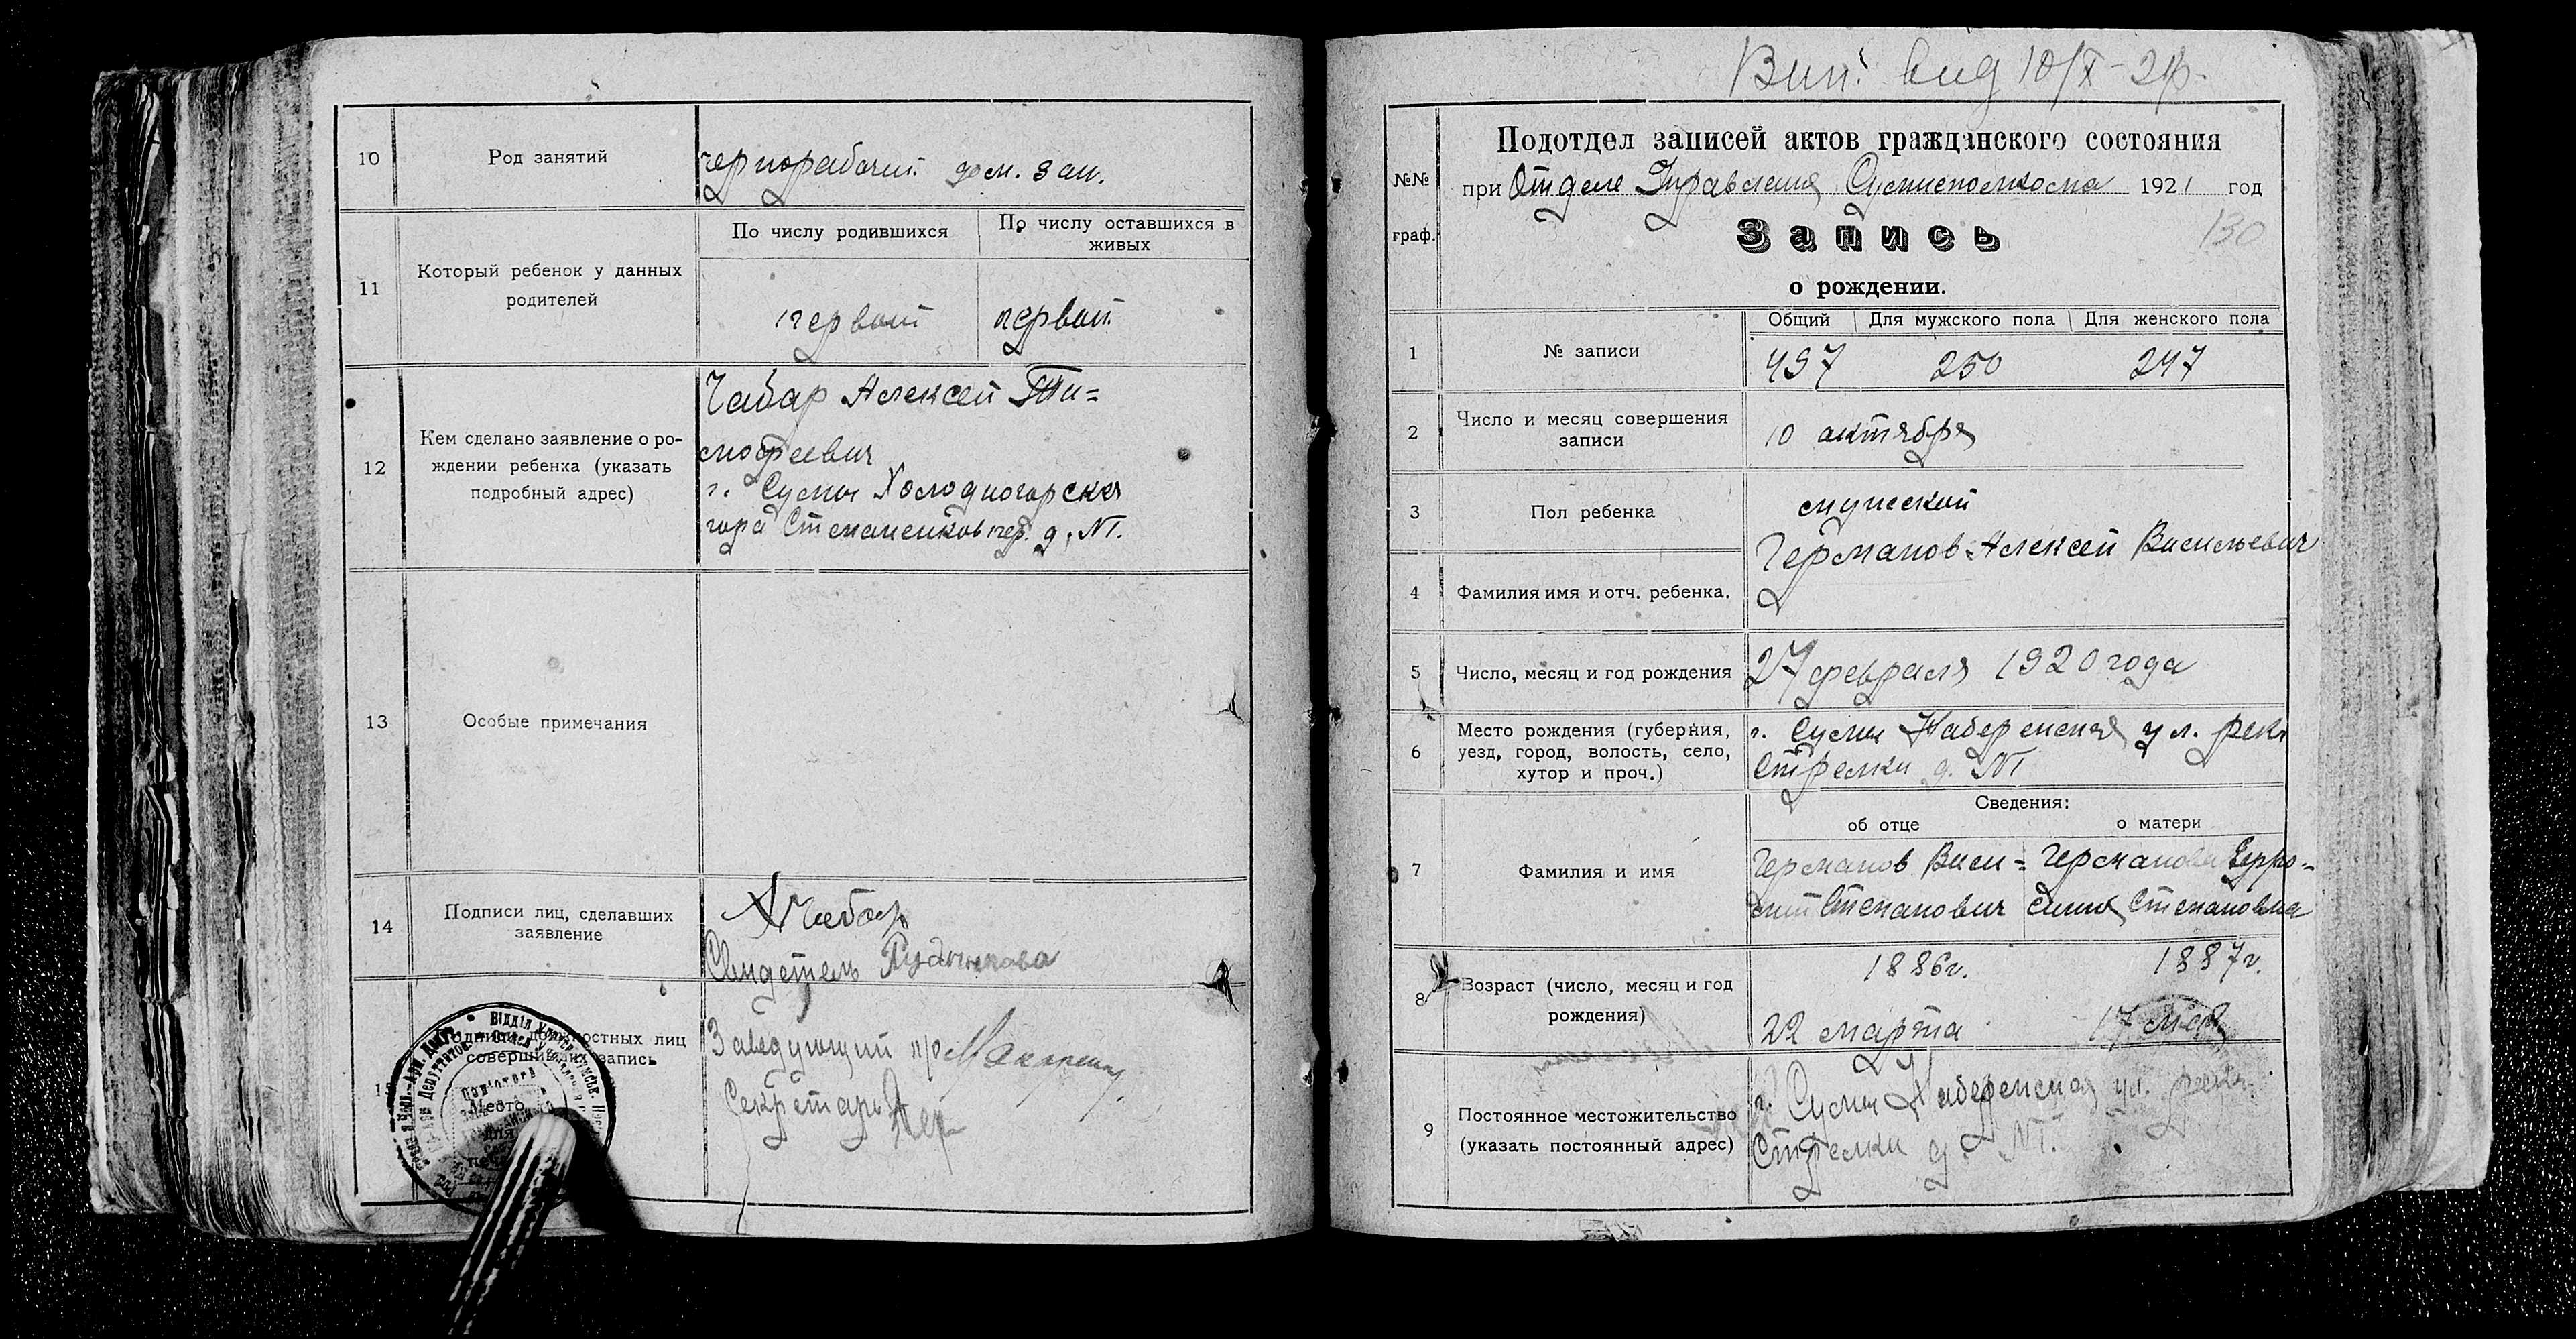 10
Род занятий
чернорабочий дом. зан.
11
Который ребенок у данных
родителей
По числу родившихся
По числу оставшихся в
живых
первый
первый
12
Кем сделано заявление о ро-
ждении ребенка (указать
подробный адрес)
Чабар Алексей Ти=
мофеевич
г. Сумы Холодногорская
гора Степаненков пер. д. №1.
13
Особые примечания
14
Подписи лиц, сделавших
заявление
А Чабар
Свидетель
должностных лиц
совершивших запись
Заведующий п/о
Секретарь
Место
Вип. вид 10/X-21р.
№№
граф.
Подотдел записей актов гражданского состояния
при Отделе Управления Сумисполкома 1921 год
130
Запись
о рождении.
1
№ записи
Общий
Для мужского пола
Для женского пола
497
250
247
2
Число и месяц совершения
записи
10 октября
3
Пол ребенка
мужской
4
Фамилия имя и отч. ребенка.
Германов Алексей Васильевич
5
Число, месяц и год рождения
27 февраля 1920 года
6
Место рождения (губерния,
уезд, город, волость, село,
хутор и проч.)
г. Сумы Набережная ул. реки
Стрелки д. №1
Сведения:
об отце
о матери
7
Фамилия и имя
Германов Васи=
лий Степанович
Германова Евфро-
синия Степановна
8
Возраст (число, месяц и год
рождения)
1886г.
22 марта
1887г.
17 мая
9
Постоянное местожительство
(указать постоянный адрес)
г. Сумы Набережная ул. реки
Стрелки д. №1.